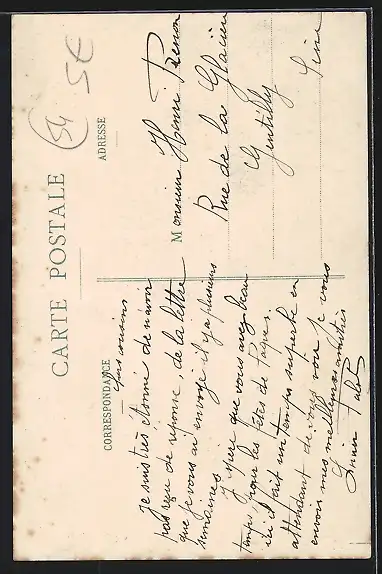 CARTE POSTALE
54
5€
CORRESPONDANCE
ADRESSE
cousins
Je suis très étonné de n'avoir
pas reçu de réponse de la lettre
que je vous ai envoyé il y a plusieurs
semaines
J'espère que vous avez beau
temps pour les fêtes de Pâques.
ici il fait un temps superbe en
attendant de vous voir je vous
envoie mes meilleures amitiés
Monsieur Henri
Rue de la Glacière
Gentilly
Seine